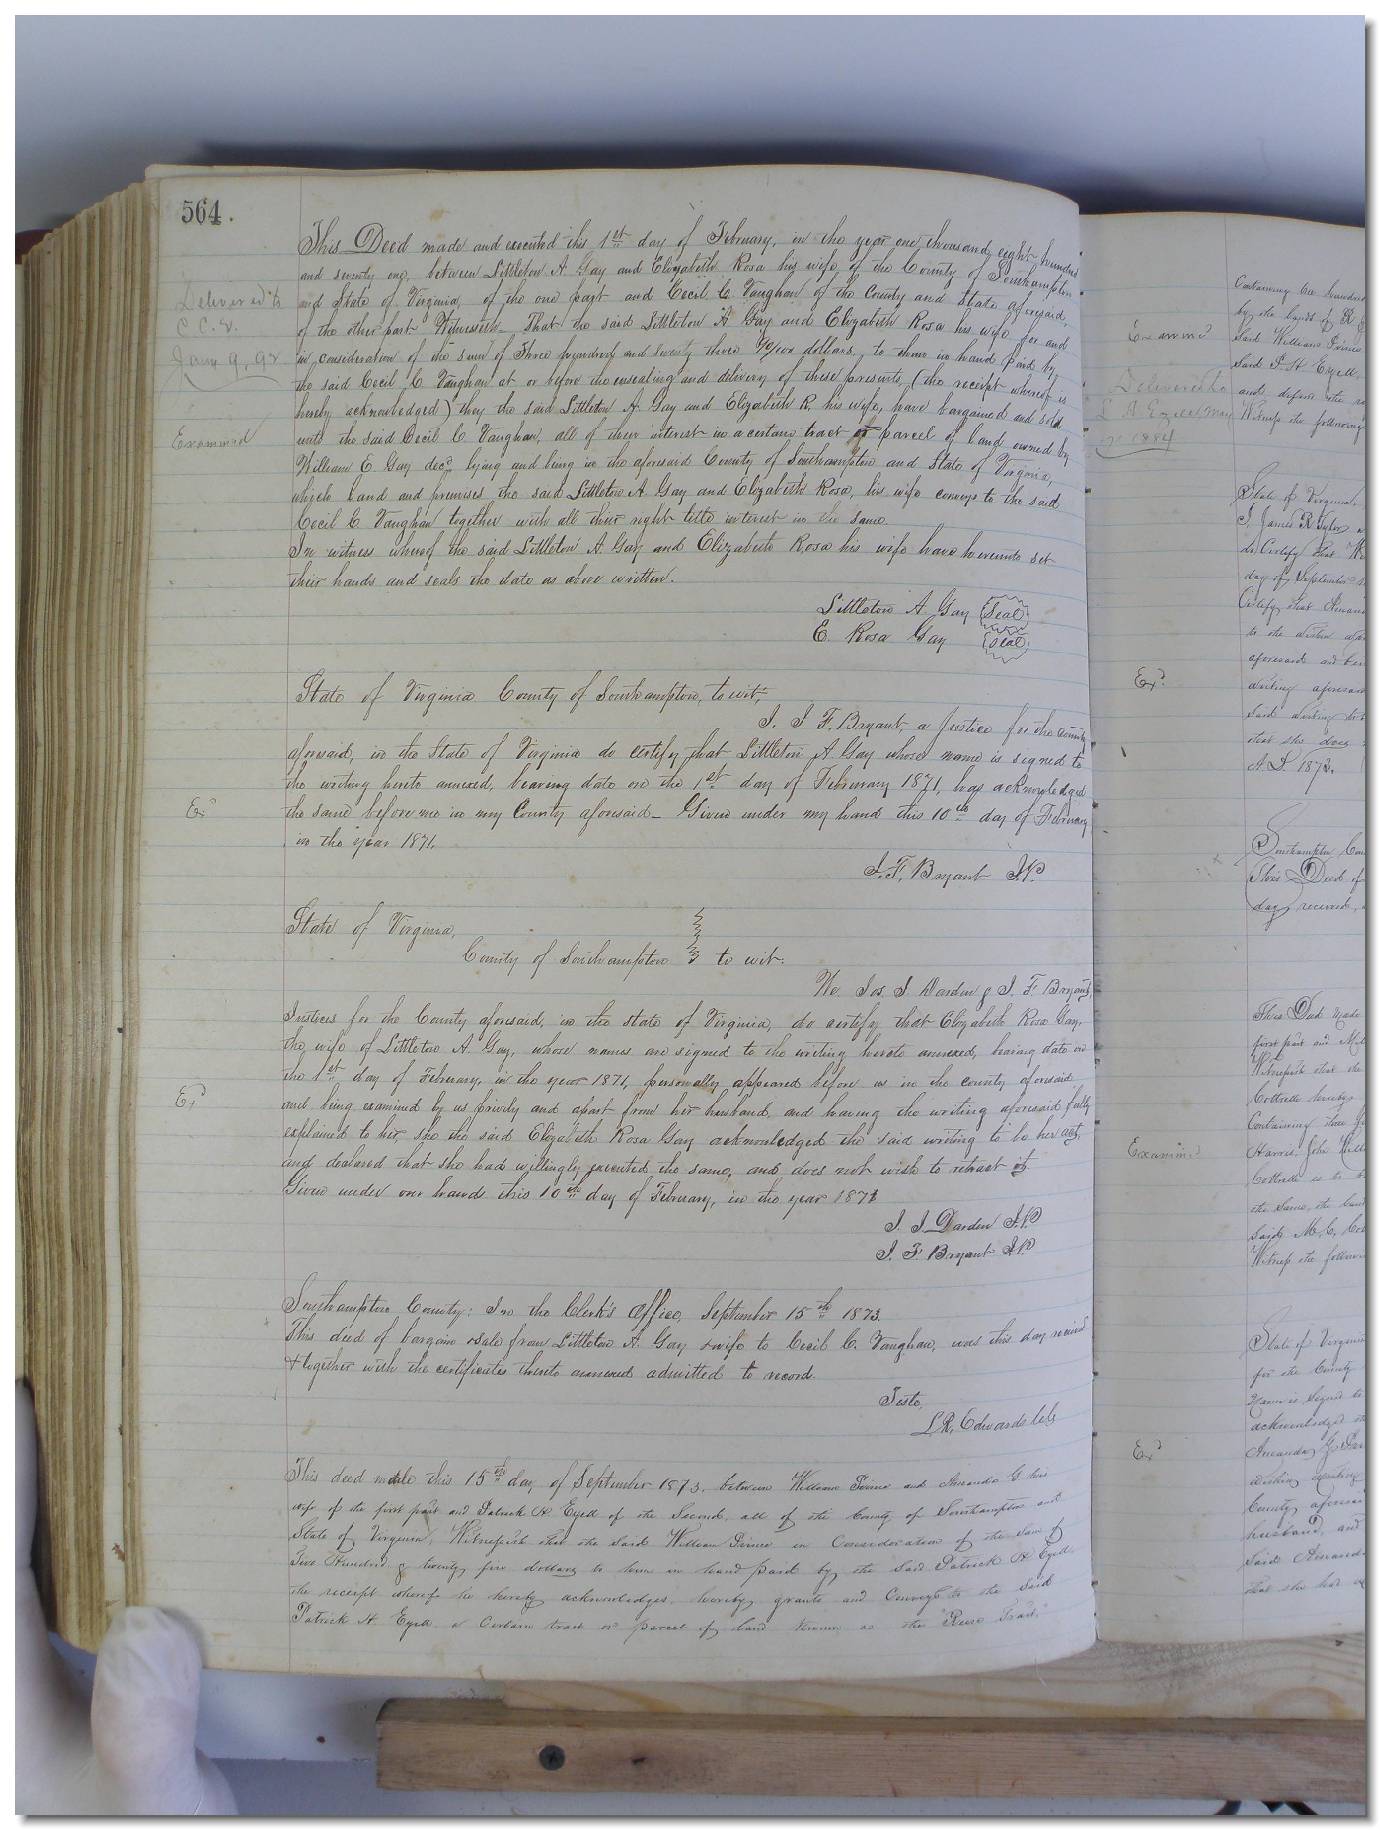 564.
This Deed made and executed this 1st day of February, in the year one thousand eight hundred
and seventy one, between Littleton A. Gay and Elizabeth Rosa his wife, of the County of Southampton
and State of Virginia, of the one part and Cecil C. Vaughan of the County and State aforesaid,
of the other part Witnesseth. That the said Littleton A Gay and Elizabeth Rosa his wife, for and
in consideration of the sum of Three hundred and seventy three dollars, to them in hand paid by
the said Cecil C. Vaughan at or before the ensealing and delivery of these presents, (the receipt whereof is
hereby acknowledged) they the said Littleton A. Gay and Elizabeth R. his wife, have bargained and sold
unto the said Cecil C Vaughan, all of their interest in a certain tract or parcel of land owned by
William E. Gay decd lying and being in the aforesaid County of Southampton and State of Virginia,
which land and premises the said Littleton A Gay and Elizabeth Rosa, his wife conveys to the said
Cecil C Vaughan together with all their right title interest in the same.
In witness whereof the said Littleton A. Gay and Elizabeth Rosa his wife have hereunto set
their hands and seals the date as above written.
Littleton A. Gay (Seal)
E. Rosa Gay (Seal)
Delivered to
C. C. V.
Jany 9, 92
Examined
State of Virginia County of Southampton, to wit,
I. J F. Bryant, a Justice for the County
aforesaid, in the State of Virginia do certify that Littleton A Gay whose name is signed to
the writing hereto annexed, bearing date on the 1st day of February 1871, has acknowledged
the same before me in my County aforesaid_ Given under my hand this 10th day of February
in the year 1871.
Exd
J. F. Bryant J.P.
State of Virginia,
County of Southampton to wit:
We Jos. J Darden & J. F. Bryant,
Justices for the County aforesaid, in the State of Virginia, do certify that Elizabeth Rosa Gay,
the wife of Littleton A Gay, whose names are signed to the writing hereto annexed, bearing date on
the 1st day of February, in the year 1871, personally appeared before us in the county aforesaid
and being examined by us privily and apart from her husband, and having the writing aforesaid fully
explained to her, she the said Elizabeth Rosa Gay acknowledged the said writing to be her act,
and declared that she had willingly executed the same, and does not wish to retract it
Given under our hands this 10th day of February, in the year 1871
Exd
J. J. Darden J.P.
J. F. Bryant J.P.
Southampton County: In the Clerk's Office, September 15th 1873.
This deed of bargain & sale from Littleton A. Gay & wife to Cecil C. Vaughan, was this day received
& together with the certificates thereto annexed admitted to record.
Teste,
L. R. Edwards
This deed made this 15th day, of September 1873, between William Prince and Amanda G his
wife of the first part and Patrick H. Ezell of the Second, all of the County of Southampton and
State of Virginia, Witnesseth that the Said William Prince in Consideration of the Sum of
Two Hundred & twenty five dollars to him in hand paid by the Said Patrick H Ezell
the receipt whereof he hereby acknowledges, hereby grants and Conveys to the Said
Patrick H. Ezell a Certain tract or parcel of land known as the
by the hands of
Said William Prince
Said P. H Ezell,
and defend the
Witness the following
Examined
Delivered to
1884
State of Virginia,
I, James R Tyler
do Certify that
day of September
Certify that Amanda
to the
aforesaid and
writing aforesaid
Said writing
that she does
A D. 1873.
Exd
Southampton
This Deed of
day received,
This Deed made
first part and
Witnesseth that
hereby
Containing
Harris, John
the Same, the
Said M. C.
Witness the following
Examined
State of Virginia
for the County
Name is Signed to
acknowledged
Amanda
writing
County aforesaid
husband, and
Said Amanda
that she had
Exd